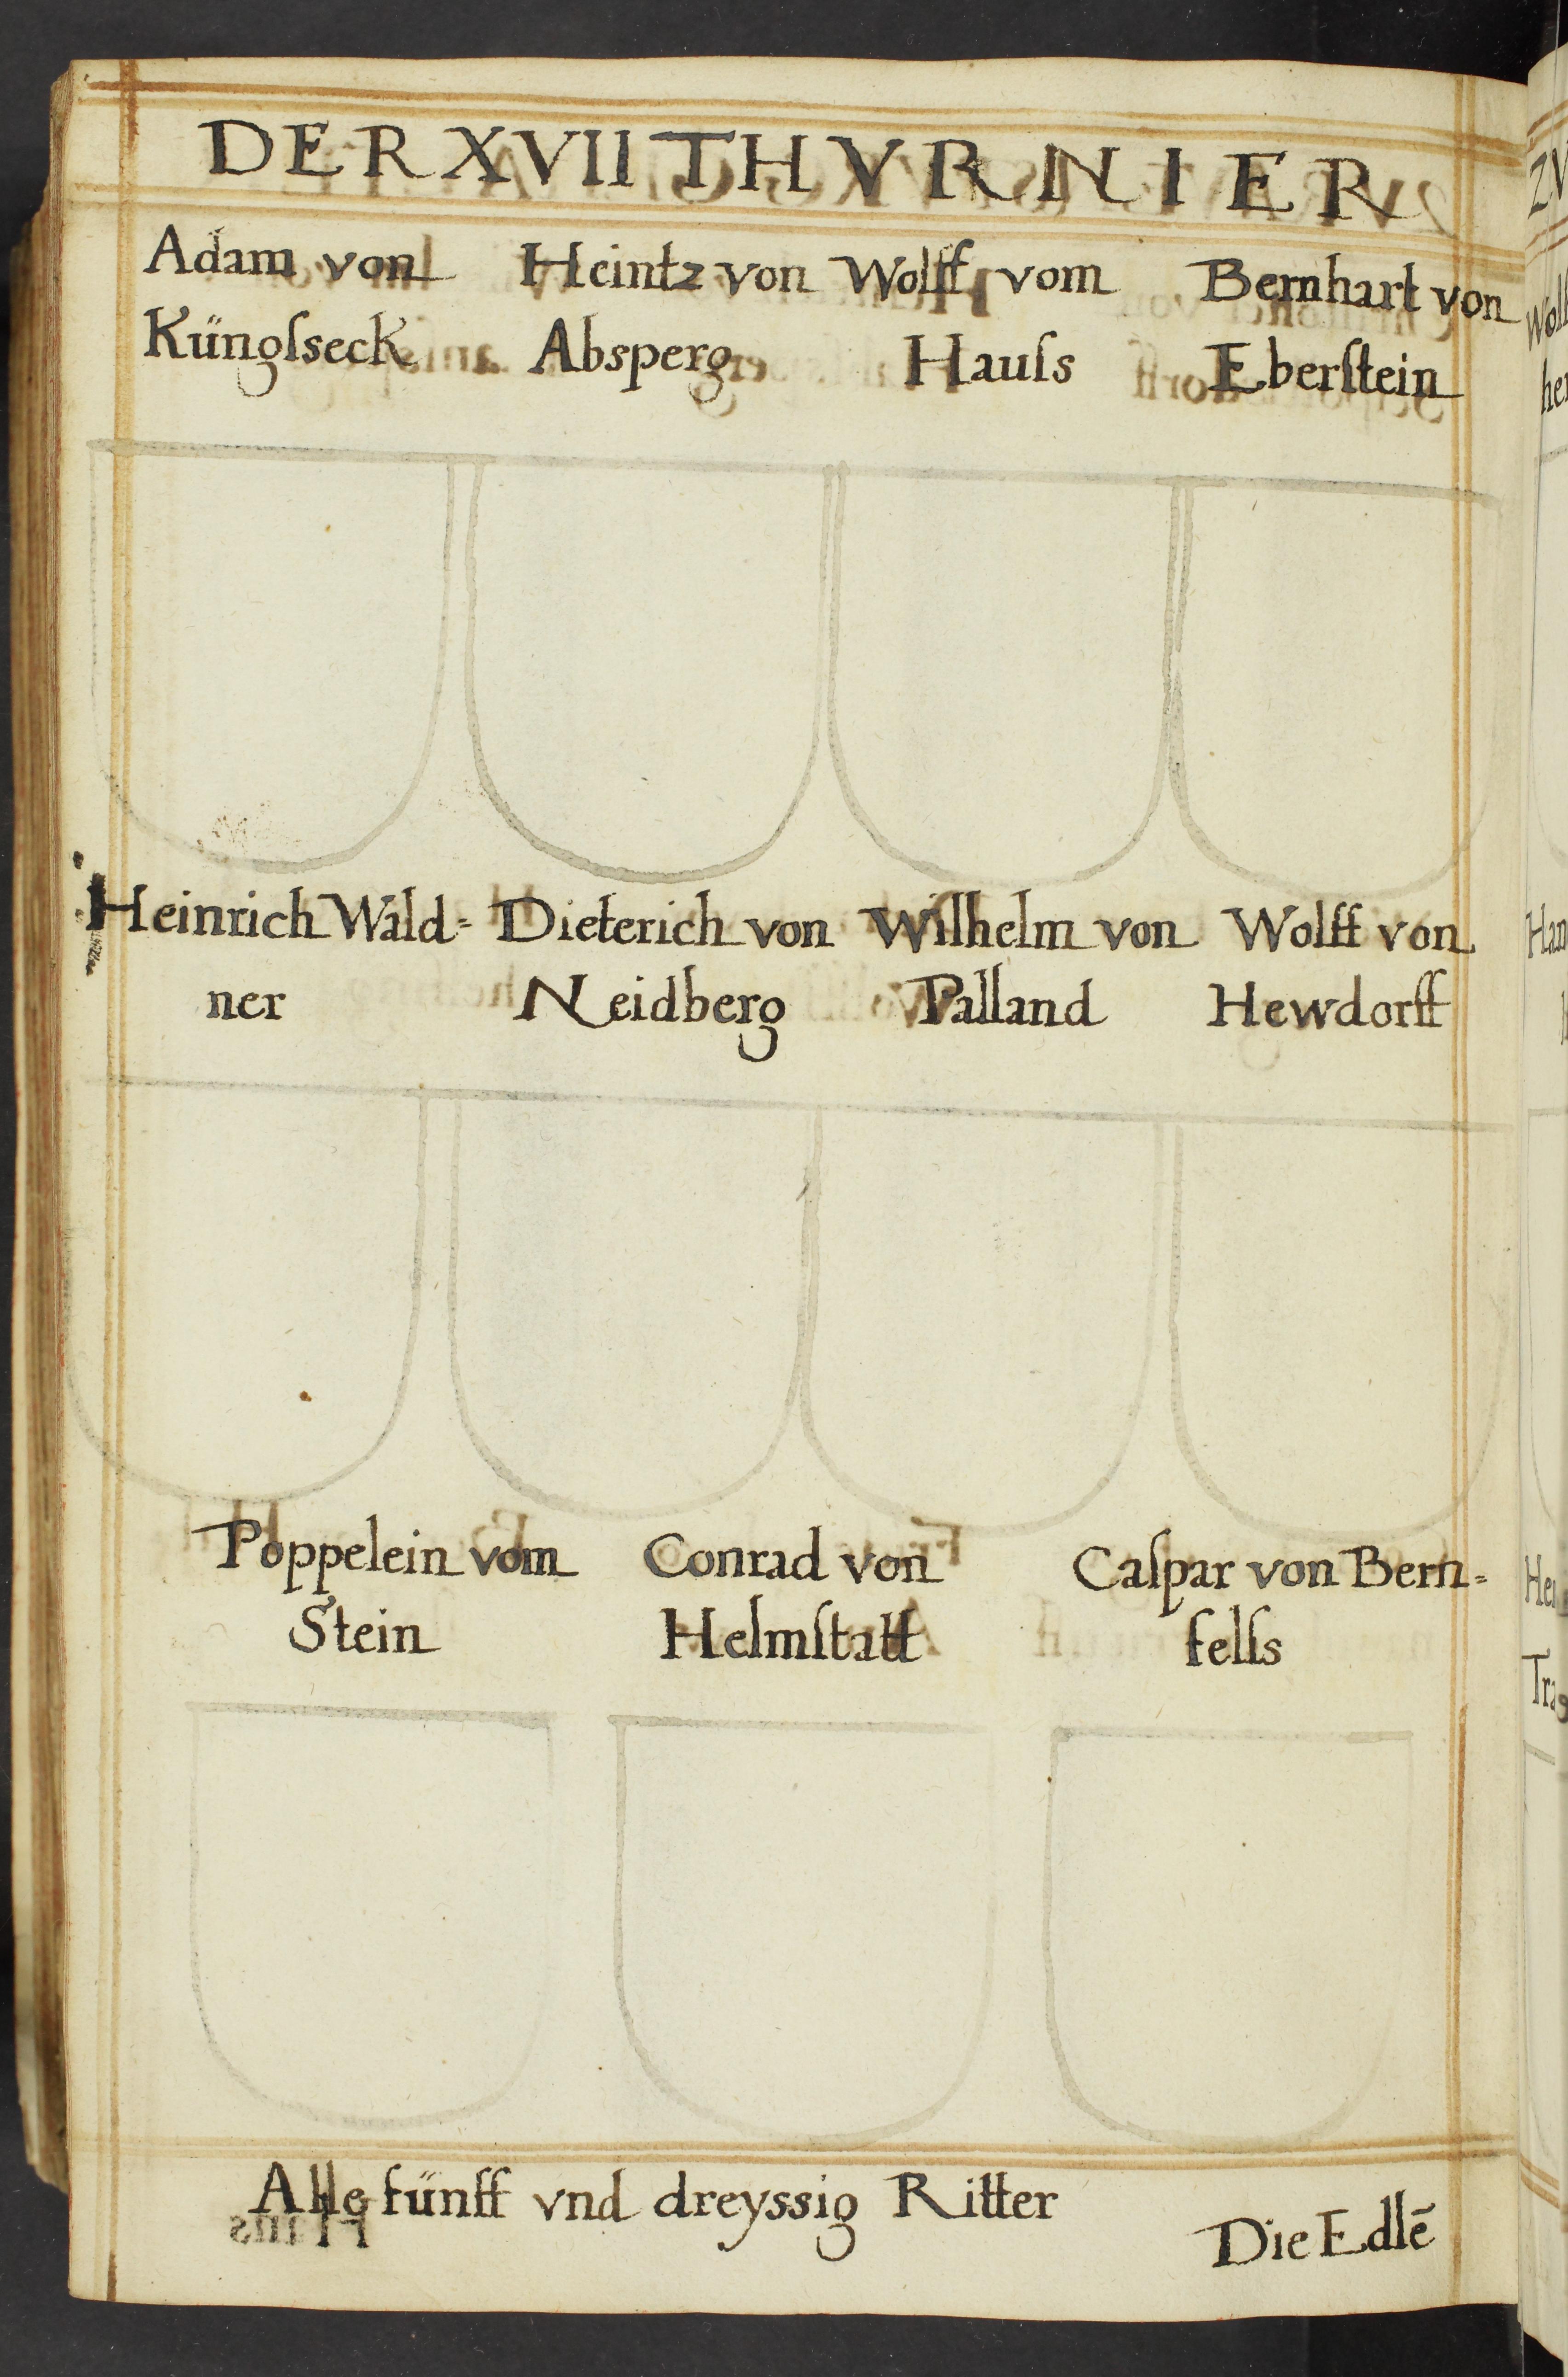 DER XVII THVRNIER
Adam von Heintz von Wolff vom Bernhart von
Küngſseck Absperg Hauſs Eberſtein
Heinrich Wald= Dieterich von Wilhelm von Wolff von
ner Neidberg Palland Hewdorff
Poppelein vom Conrad von Caſpar von Bern=
Stein Helmſtatt felſs
Alle fünff vnd dreyssig Ritter
Die Edlē